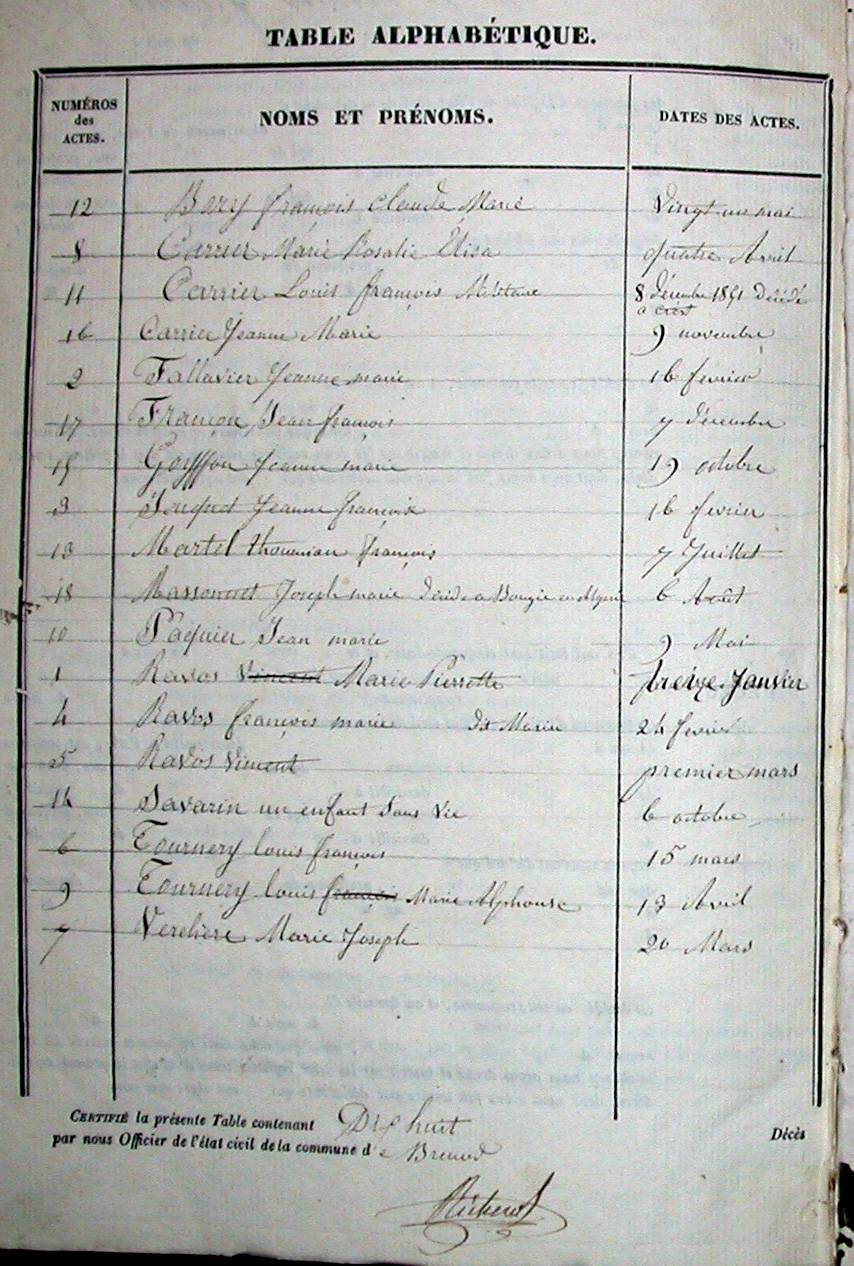 TABLE ALPHABÉTIQUE.
NUMÉROS des ACTES. NOMS ET PRÉNOMS. DATES DES ACTES.
12 Bery françois Claude Marie Vingt un mai
8 Carrier Marie Rosalie Elisa quatre Avril
11 Carrier Louis françois Militaire 8 décembre 1851 Décédé
a crest
16 Carrier Jeanne Marie 9 novembre
2 Fallavier Jeanne marie 16 fevrier
17 Françon Jean françois 7 décembre
15 Goyffon Jeanne marie 19 octobre
3 Jeanne françoise 16 fevrier
13 Martel françois 7 Juillet
18 Massonnet Joseph marie Décédé a Bougie en algerie 6 Août
10 Paquier Jean marie 9 Mai
1 Ravos Vincent Marie Pierrette treize Janvier
4 Ravos françois marie dit Marin 24 fevrier
5 Ravos Vincent premier mars
14 Savarin un enfant sans vie 6 octobre
6 Tournery louis françois 15 mars
9 Tournery louis françois Marie Alphonse 13 Avril
7 Verchere Marie Joseph 20 Mars
CERTIFIÉ la présente Table contenant Dix huit Décès
par nous Officier de l'état civil de la commune de Brenod